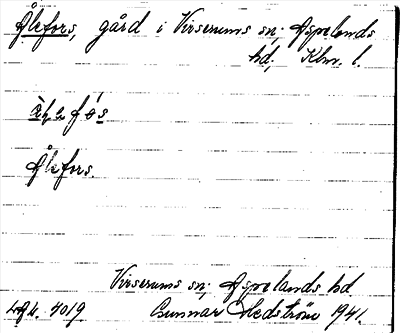 Ålefors, gård i Virserums sn; Aspelands
hd, Klm. l.
Ålefors.
Virserums sn; Aspelands hd
4019 Gunnar Hedström 1941.